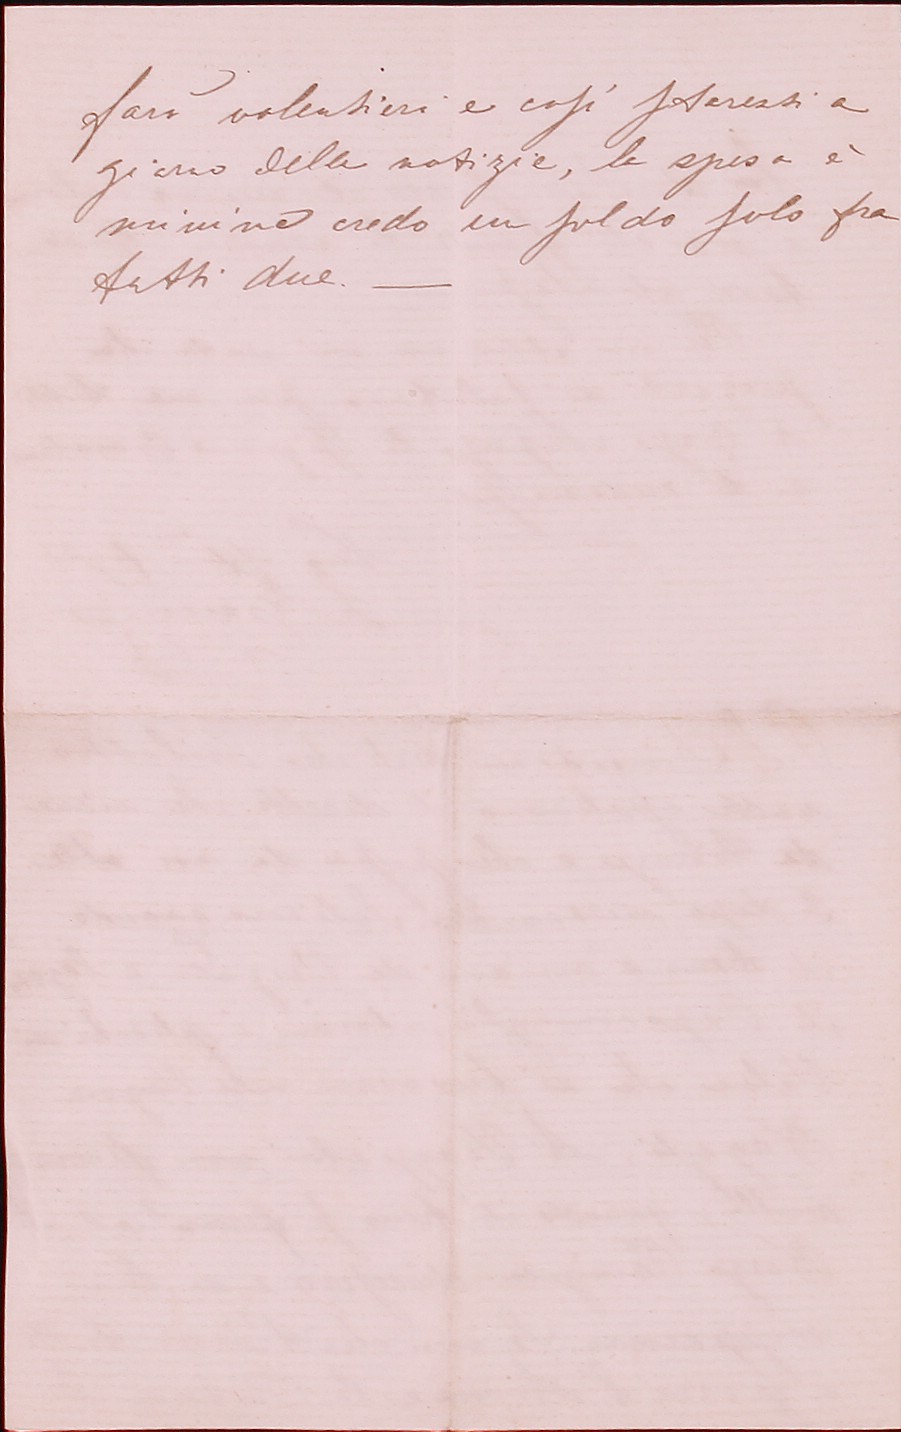 farò volentieri e così staressi a
giorno delle notizie, la spesa è
minima credo un soldo solo fra
tutti due. —